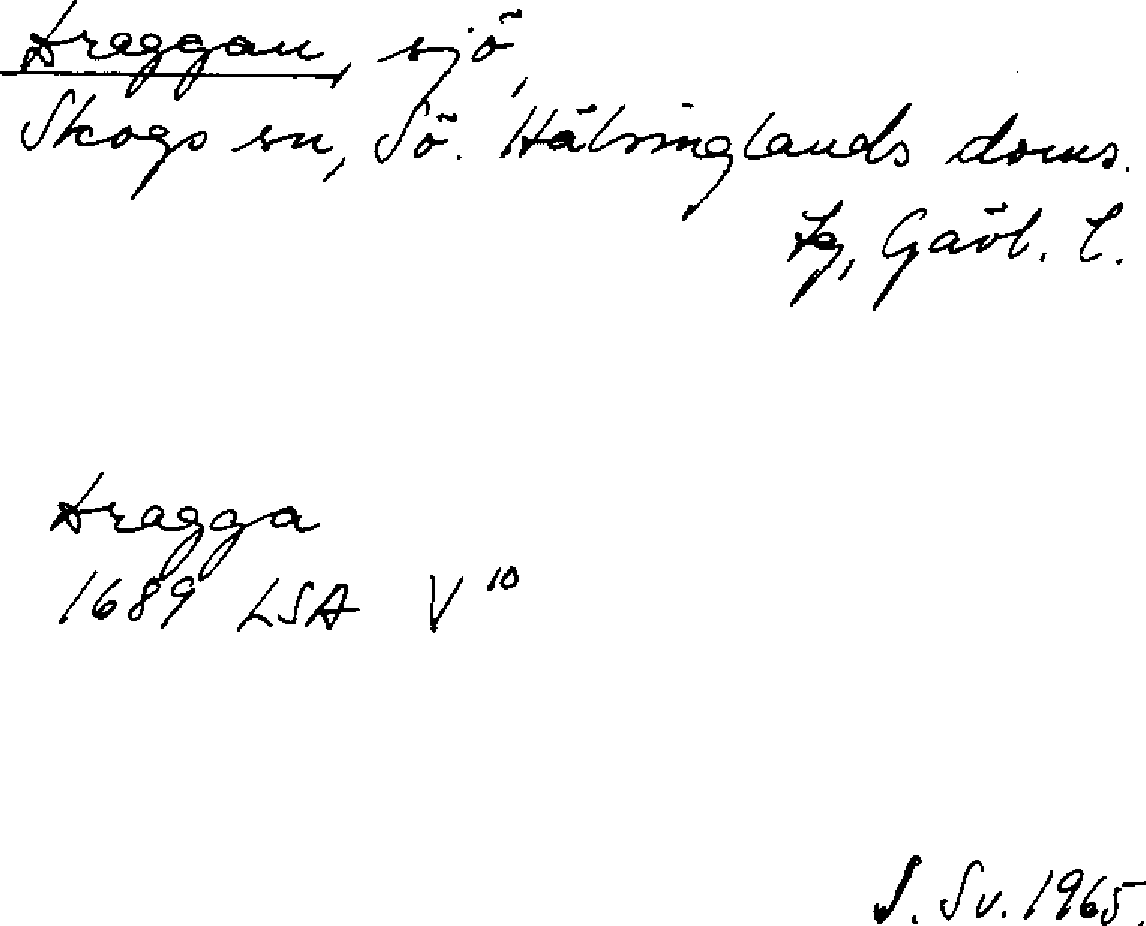 Araggan, sjö,
Skogs sn, Sö. Hälsinglands doms.
tg, Gävl. l.
Aragga
1689 LSA V¹⁰
S. Sv. 1965.